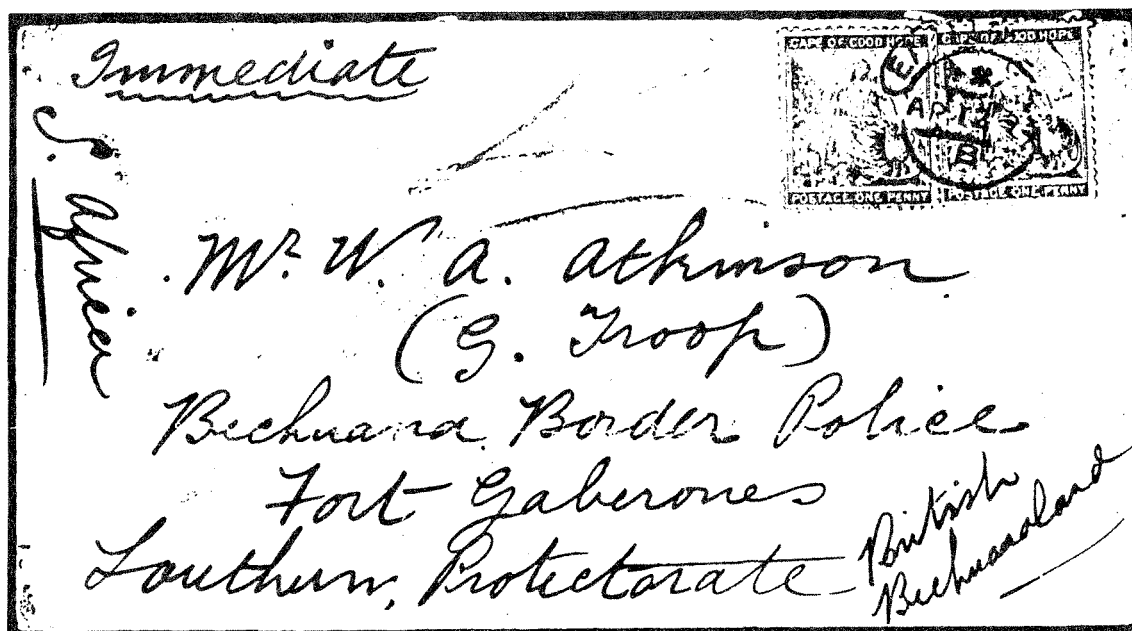 Immediate
S. Africa
CAPE OF GOOD HOPE
POSTAGE ONE PENNY
CAPE OF GOOD HOPE
POSTAGE ONE PENNY
AP 13
B
Mr. W. A. Atkinson
(G. Troop)
Bechuana Border Police
Fort Gaberones
Southern, Protectorate
British
Bechuanaland